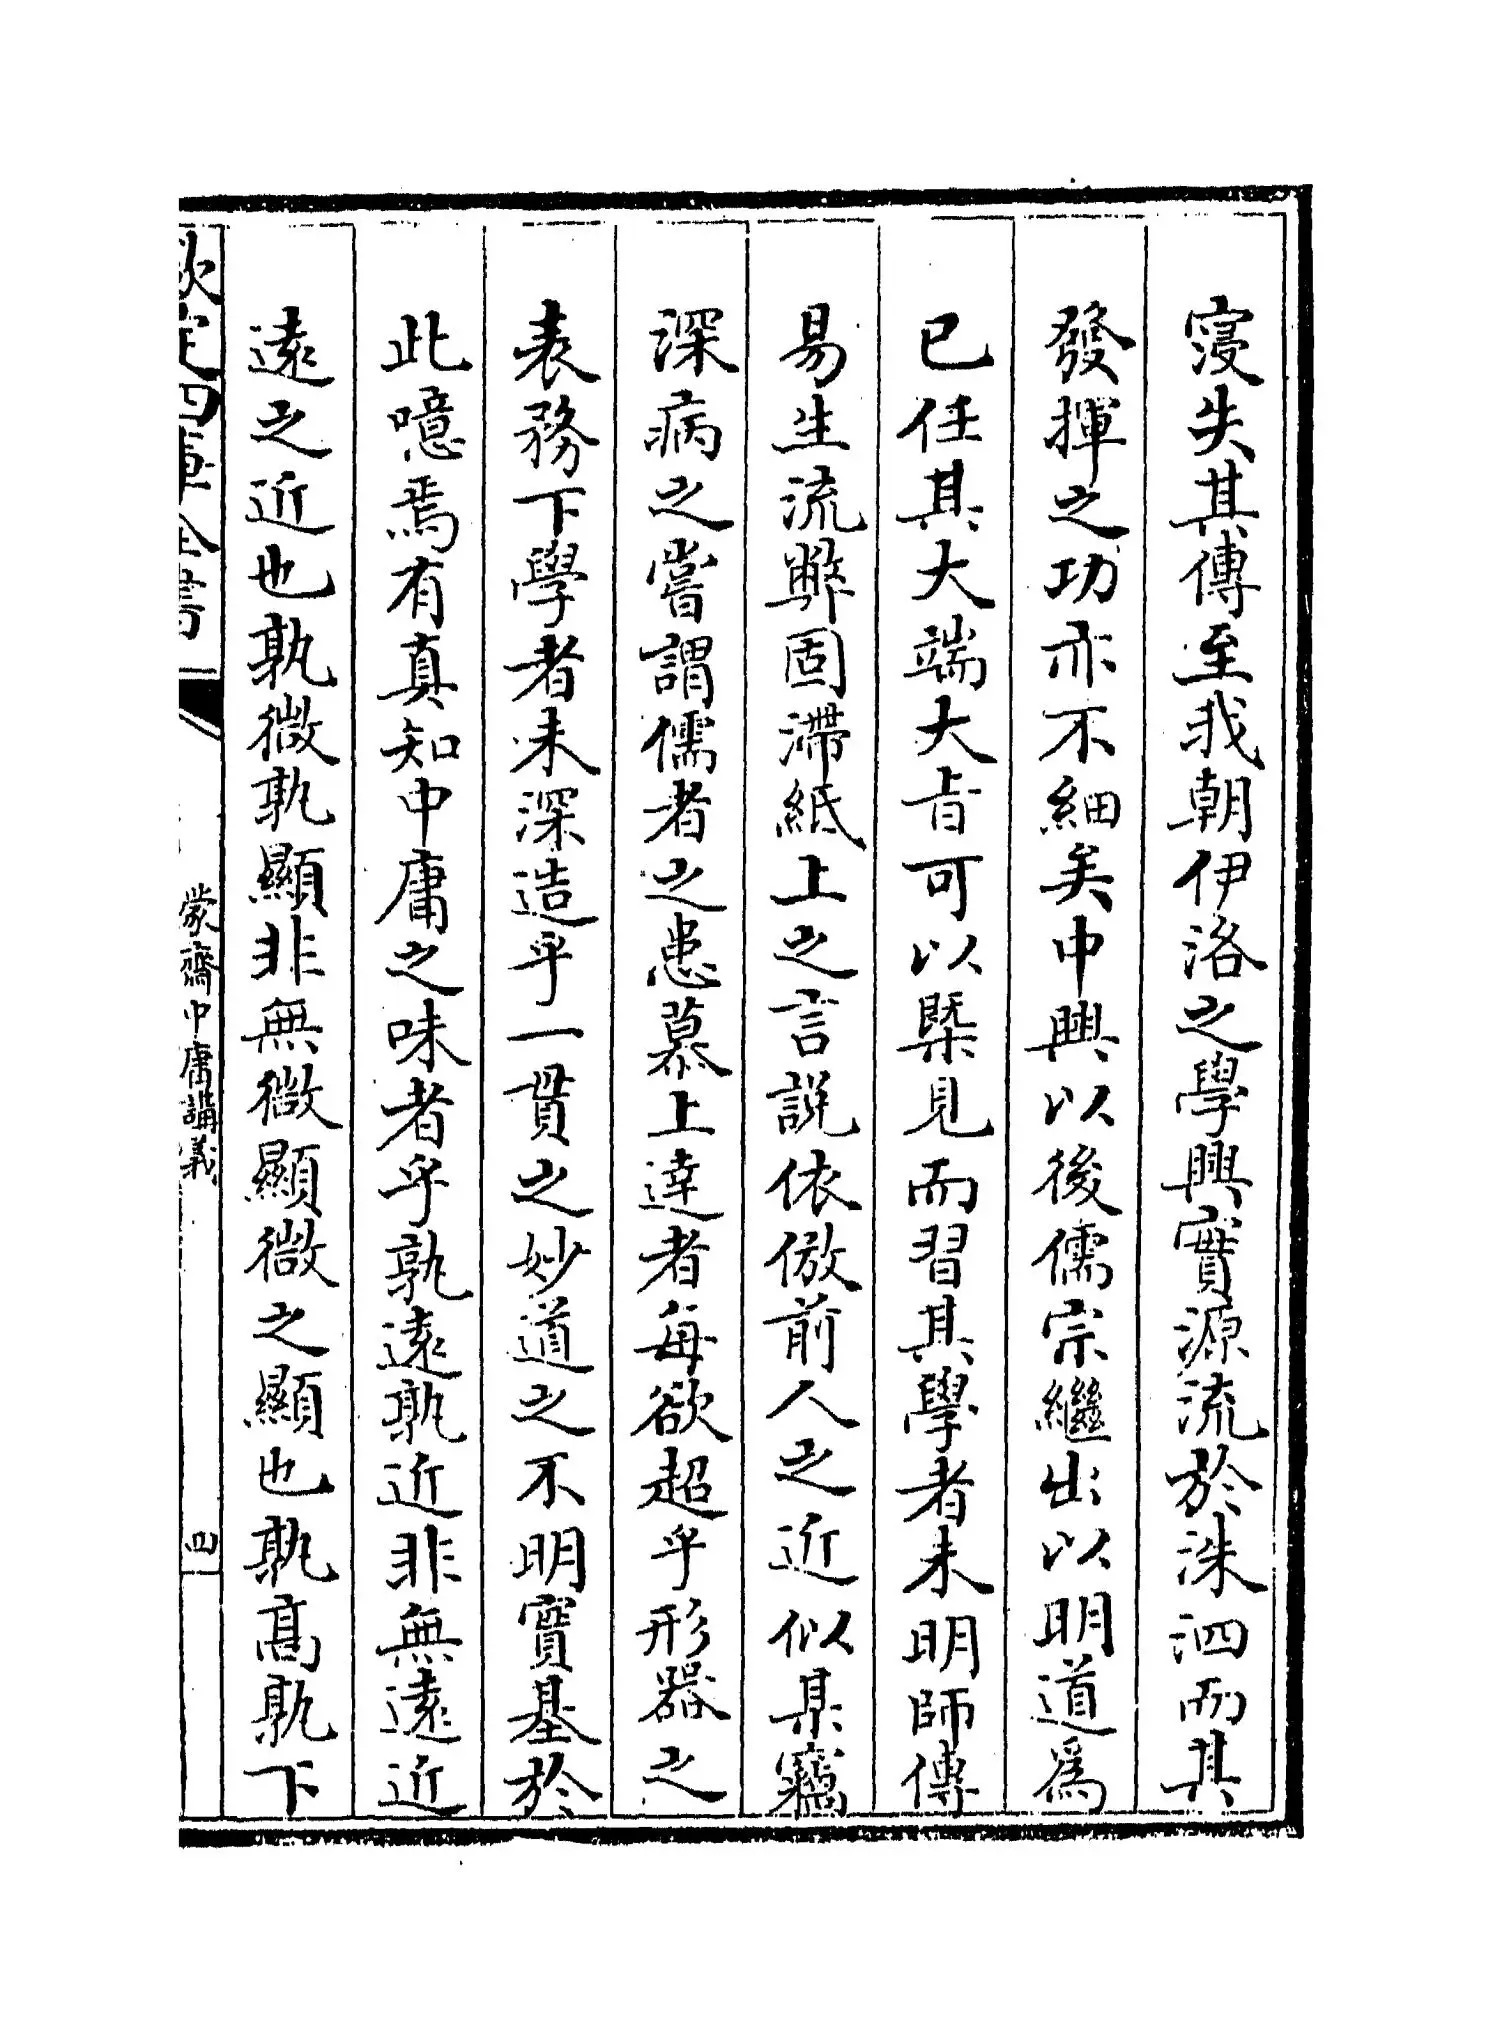 寖失其傳至我朝伊洛之學興實源流於洙泗而其
發揮之功亦不細矣中興以後儒宗繼出以明道爲
已任其大端大旨可以槩見而習其學者未明師傳
易生流弊固滯紙上之言說依倣前人之近似某竊
深病之嘗謂儒者之患慕上達者每欲超乎形器之
表務下學者未深造乎一貫之妙道之不明實基於
此噫焉有真知中庸之味者乎孰遠孰近非無遠近
遠之近也孰微孰顯非無微顯微之顯也孰髙孰下
欽定四庫全書
蒙齋中庸講義
四